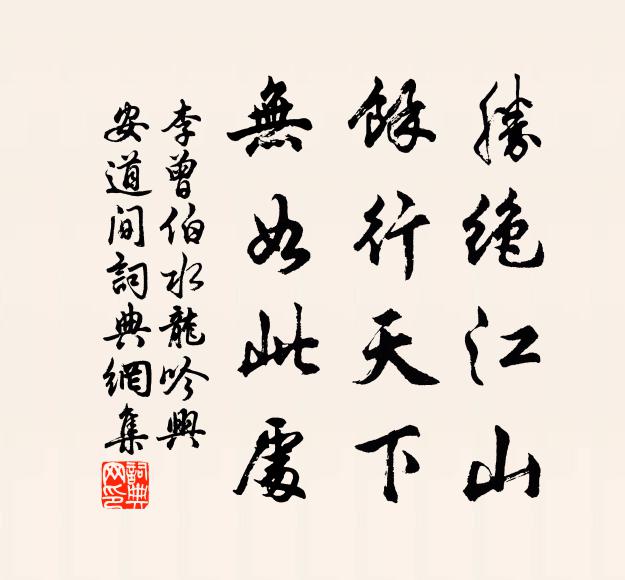 勝絕江山
餘行天下
無如此處
李曾伯水龍吟興
安道間詞典網集
詞典网印